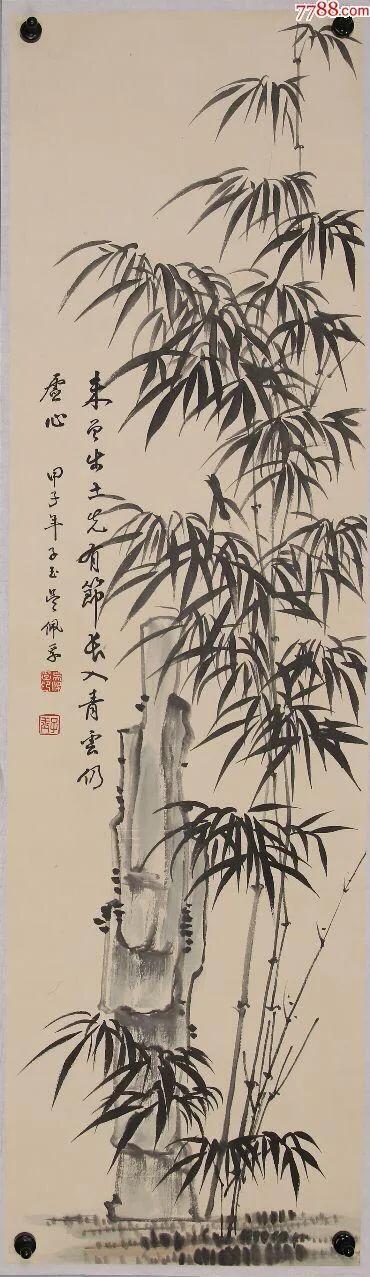 7788.com
未曾出土先有節長入青雲仍
虛心
甲子年子玉吳佩孚